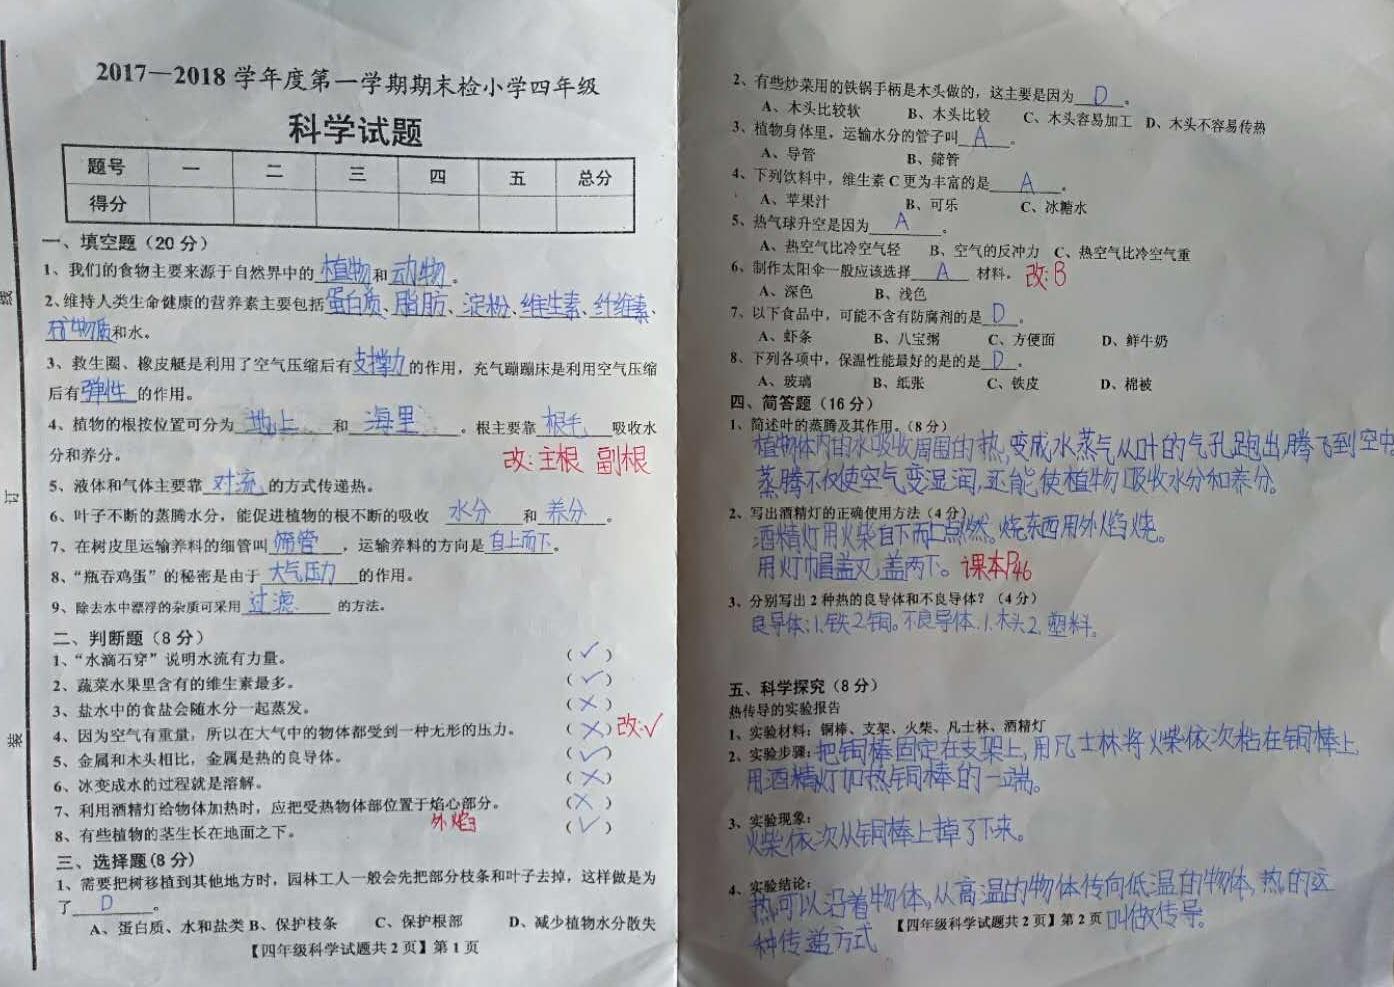 2017—2018 学年度第一学期期末检小学四年级
科学试题
题号 一 二 三 四 五 总分
得分
一、填空题（20 分）
1、我们的食物主要来源于自然界中的 植物 和 动物 。
2、维持人类生命健康的营养素主要包括 蛋白质、脂肪、淀粉、维生素、纤维素、
矿物质 和水。
3、救生圈、橡皮艇是利用了空气压缩后有 支撑力 的作用，充气蹦蹦床是利用空气压缩
后有 弹性 的作用。
4、植物的根按位置可分为 地上 和 海里 。根主要靠 根毛 吸收水
分和养分。 改: 主根 副根
5、液体和气体主要靠 对流 的方式传递热。
6、叶子不断的蒸腾水分，能促进植物的根不断的吸收 水分 和 养分 。
7、在树皮里运输养料的细管叫 筛管 ，运输养料的方向是 自上而下 。
8、“瓶吞鸡蛋”的秘密是由于 大气压力 的作用。
9、除去水中漂浮的杂质可采用 过滤 的方法。
二、判断题（8 分）
1、“水滴石穿”说明水流有力量。 （ ✓ ）
2、蔬菜水果里含有的维生素最多。 （ ✓ ）
3、盐水中的食盐会随水分一起蒸发。 （ × ）
4、因为空气有重量，所以在大气中的物体都受到一种无形的压力。 （ × ） 改:✓
5、金属和木头相比，金属是热的良导体。 （ ✓ ）
6、冰变成水的过程就是溶解。 （ × ）
7、利用酒精灯给物体加热时，应把受热物体部位置于焰心部分。 （ × ）
外焰
8、有些植物的茎生长在地面之下。 （ ✓ ）
三、选择题(8 分)
1、需要把树移植到其他地方时，园林工人一般会先把部分枝条和叶子去掉，这样做是为
了 D 。
A、蛋白质、水和盐类 B、保护枝条 C、保护根部 D、减少植物水分散失
【四年级科学试题共 2 页】第 1 页
题
订
装
2、有些炒菜用的铁锅手柄是木头做的，这主要是因为 D 。
A、木头比较软 B、木头比较 C、木头容易加工 D、木头不容易传热
3、植物身体里，运输水分的管子叫 A 。
A、导管 B、筛管
4、下列饮料中，维生素 C 更为丰富的是 A 。
A、苹果汁 B、可乐 C、冰糖水
5、热气球升空是因为 A 。
A、热空气比冷空气轻 B、空气的反冲力 C、热空气比冷空气重
6、制作太阳伞一般应该选择 A 材料。 改: B
A、深色 B、浅色
7、以下食品中，可能不含有防腐剂的是 D 。
A、虾条 B、八宝粥 C、方便面 D、鲜牛奶
8、下列各项中，保温性能最好的是的是 D 。
A、玻璃 B、纸张 C、铁皮 D、棉被
四、简答题（16 分）
1、简述叶的蒸腾及其作用。（8 分）
植物体内的水吸收周围的热，变成水蒸气从叶的气孔跑出，腾飞到空中
蒸腾不仅使空气变湿润，还能使植物吸收水分和养分。
2、写出酒精灯的正确使用方法（4 分）
酒精灯用火柴自下而上点燃。烧东西用外焰烧。
用灯帽盖灭，盖两下。 课本P46
3、分别写出 2 种热的良导体和不良导体？（4 分）
良导体：1.铁2.铜。不良导体.1.木头2.塑料。
五、科学探究（8 分）
热传导的实验报告
1、实验材料：铜棒、支架、火柴、凡士林、酒精灯
2、实验步骤：把铜棒固定在支架上，用凡士林将火柴依次粘在铜棒上
用酒精灯加热铜棒的一端。
3、实验现象：
火柴依次从铜棒上掉了下来。
4、实验结论：
热可以沿着物体，从高温的物体传向低温的物体，热的这
种传递方式 叫做传导。
【四年级科学试题共 2 页】第 2 页